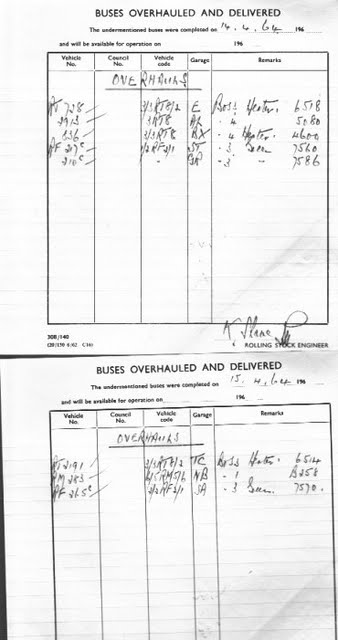 BUSES OVERHAULED AND DELIVERED
The undermentioned buses were completed on 14.4.64 196
and will be available for operation on 196
Vehicle No. Council No. Vehicle code Garage Remarks
OVERHAULS
RT 728 3/3RT8/2 E Body Heater 6518
2913 3RT8 AL - 4 5080
536 3/3RT8 BX - 4 Heater 4600
RF 297c 2/2RF2/1 ST - 3 7560
210c - SA - 3 - 7586
ROLLING STOCK ENGINEER
308/140
BUSES OVERHAULED AND DELIVERED
The undermentioned buses were completed on 15.4.64 196
and will be available for operation on 196
Vehicle No. Council No. Vehicle code Garage Remarks
OVERHAULS
RT 2191 3/3RT8/2 TC Heater 6514
RM 283 2/5RM5/6 NB - 1 B258
RF 265c 2/2RF2/1 SA - 3 7570